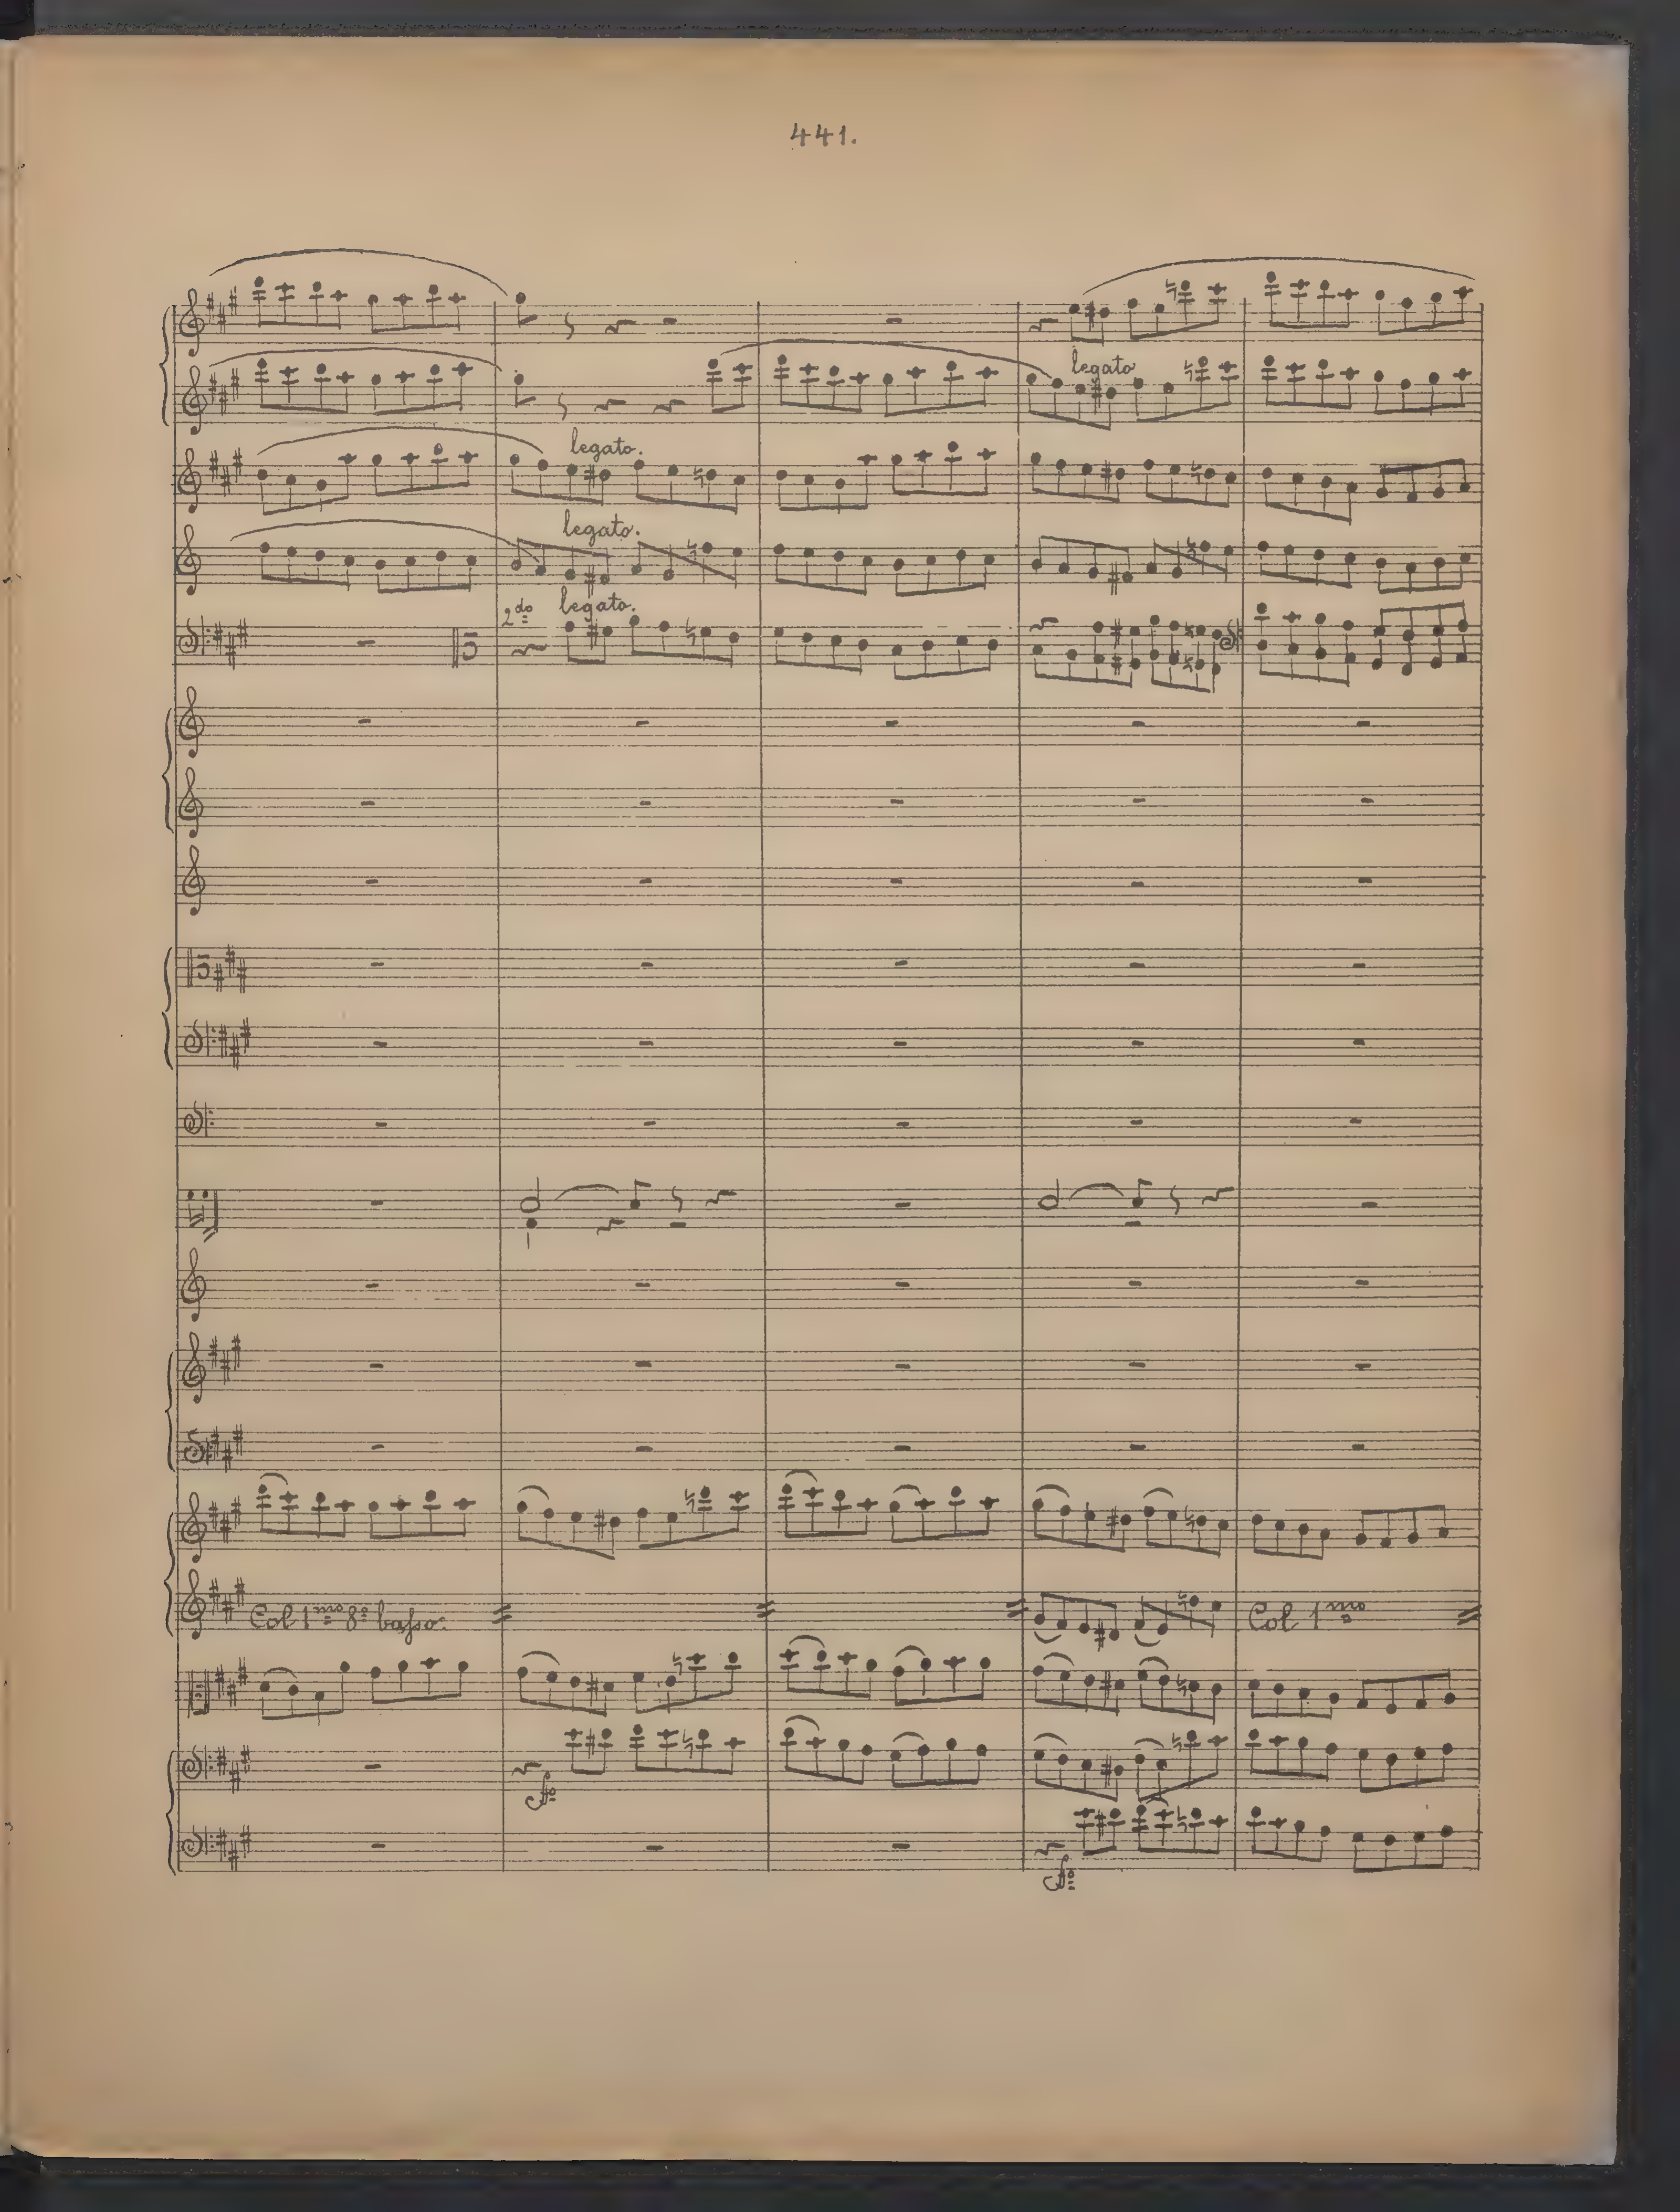 441.
legato
legato.
legato.
2do legato.
Col 1mo 8a basso.
Col 1mo